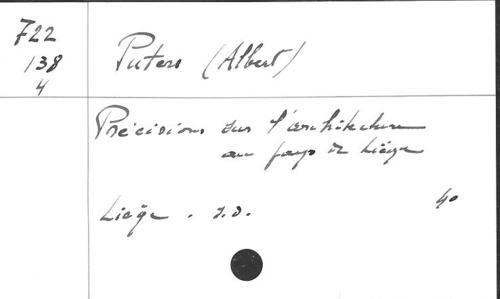 722
138
4
Puters (Albert)
Précisions sur l'architecture
au pays de Liège
Liège . s.d.
40